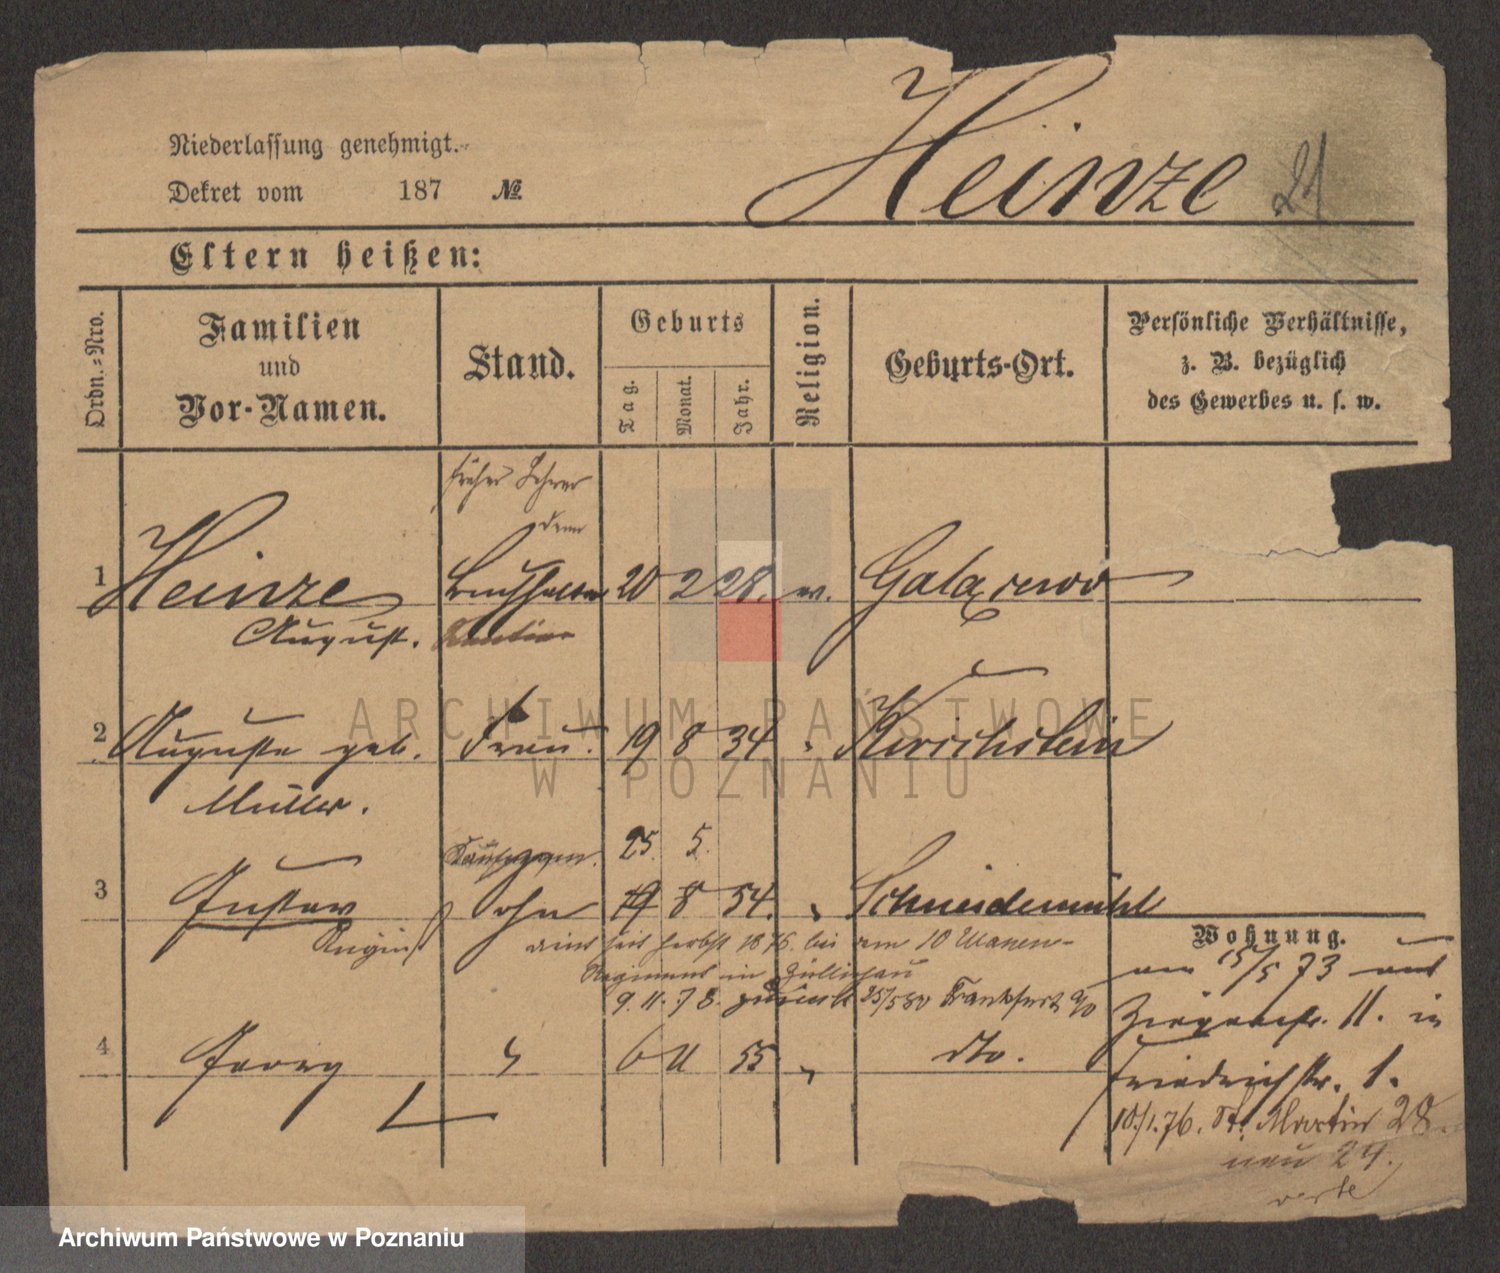 Heinze 21
Niederlassung genehmigt.
Dekret vom 187 №
Eltern heißen:
Ordn.-Nro.
Familien
und
Vor-Namen.
Stand.
Geburts
Tag.
Monat.
Jahr.
Religion.
Geburts-Ort.
Persönliche Verhältnisse,
z. B. bezüglich
des Gewerbes u. s. w.
früher Lehrer
dann
1 Heinze Buchhalter 20 2 28. ev.
August.
2 Auguste geb. Frau. 19 8 34 " Kirschstein
Müller.
25. 5.
3 Gustav Sohn 19 8 54. " Schneidemühl
seit Herbst 1876 bei 10 Ulanen-
Regiment in Züllichau
9.11.78. zurück 25/5 80 Frankfurt a/O
4 Georg " 6 11 55 " dto.
Wohnung.
am 15/5 73 aus
11. in
Friedrichstr. 1.
10./1.76. St. Martin 28.
neu 24.
verte
ARCHIWUM PAŃSTWOWE
W POZNANIU
Archiwum Państwowe w Poznaniu